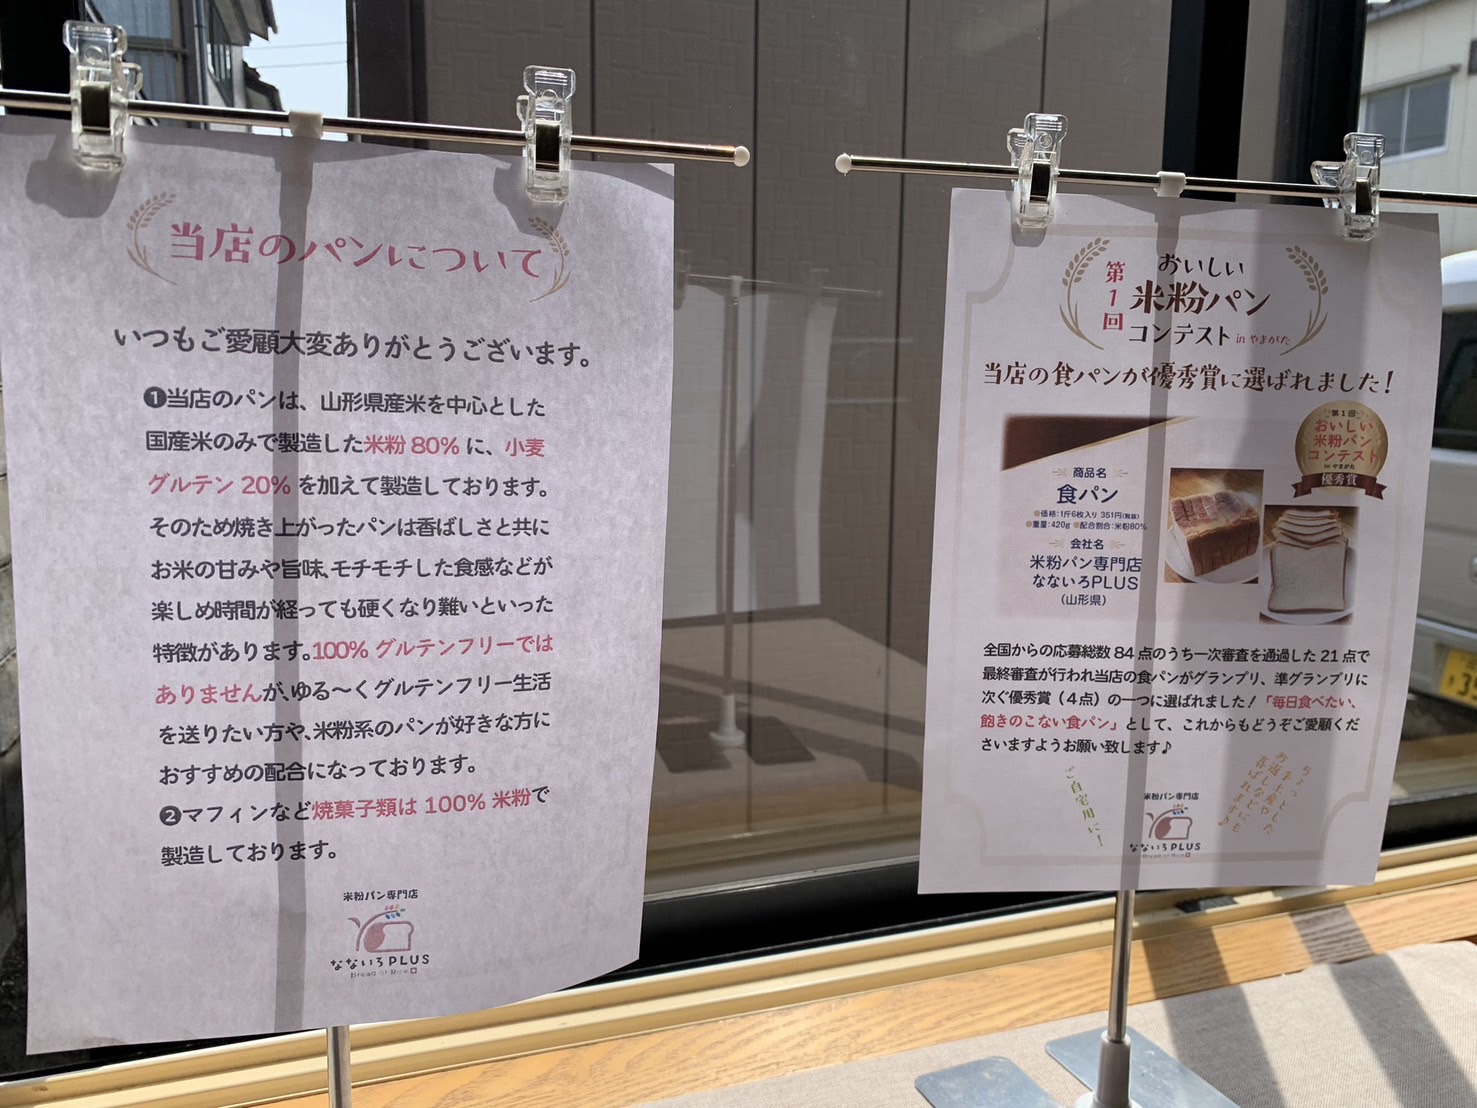 当店のパンについて
いつもご愛顧大変ありがとうございます。
❶当店のパンは、山形県産米を中心とした
国産米のみで製造した米粉80%に、小麦
グルテン20%を加えて製造しております。
そのため焼き上がったパンは香ばしさと共に
お米の甘みや旨味、モチモチした食感などが
楽しめ時間が経っても硬くなり難いといった
特徴があります。100%グルテンフリーでは
ありませんが、ゆる〜くグルテンフリー生活
を送りたい方や、米粉系のパンが好きな方に
おすすめの配合になっております。
❷マフィンなど焼菓子類は100%米粉で
製造しております。
米粉パン専門店
なないろPLUS
Bread of Rice
第1回
おいしい
米粉パン
コンテスト in やまがた
当店の食パンが優秀賞に選ばれました!
第1回
おいしい
米粉パン
コンテスト
in やまがた
優秀賞
商品名
食パン
●価格:1斤6枚入り 351円(税抜)
●重量:420g ●配合割合:米粉80%
会社名
米粉パン専門店
なないろPLUS
(山形県)
全国からの応募総数84点のうち一次審査を通過した21点で
最終審査が行われ当店の食パンがグランプリ、準グランプリに
次ぐ優秀賞(4点)の一つに選ばれました!「毎日食べたい、
飽きのこない食パン」として、これからもどうぞご愛顧くだ
さいますようお願い致します♪
ご自宅用に!
ちょっとした
手土産や
お返しなどにも
喜ばれます♪
米粉パン専門店
なないろPLUS
Bread of Rice